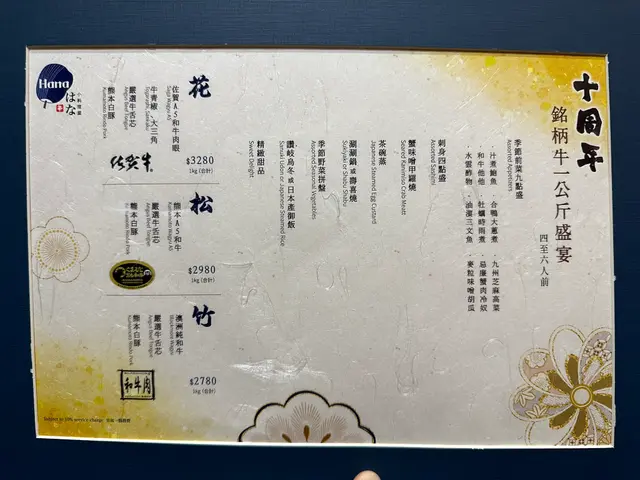 十周年
銘柄牛一公斤盛宴
四至六人前
季節前菜九點盛
Assorted Appetizers
・汁煮鮑魚 ・合鴨大蔥煮 ・九州芝麻高菜
・和牛他他 ・牡蠣時雨煮 ・忌廉蟹肉冷奴
・水雲醋物 ・油漬三文魚 ・麥粒味噌胡瓜
刺身四點盛
Assorted Sashimi
蟹味噌甲羅燒
Seared Kanimiso Crab Meat
茶碗蒸
Japanese Steamed Egg Custard
涮涮鍋 或 壽喜燒
Sukiyaki or Shabu Shabu
季節野菜拼盤
Assorted Seasonal Vegetables
讚岐烏冬 或 日本產御飯
Sanuki Udon or Japanese Steamed Rice
精緻甜品
Sweet Delight
花
佐賀A5和牛肉眼
Saga Wagyu A5
牛青椒、大三角
嚴選牛舌芯
Angus Beef Tongue
熊本白豚
Kumamoto Waito Pork
佐賀牛
$3280
1kg (合計)
松
熊本A5和牛
Kumamoto Wagyu A5
嚴選牛舌芯
Angus Beef Tongue
熊本白豚
Kumamoto Waito Pork
$2980
1kg (合計)
竹
澳洲純和牛
嚴選牛舌芯
Angus Beef Tongue
熊本白豚
Kumamoto Waito Pork
和牛肉
$2780
1kg (合計)
Hana
はな
小料理屋
Subject to 10% service charge 另加一服務費